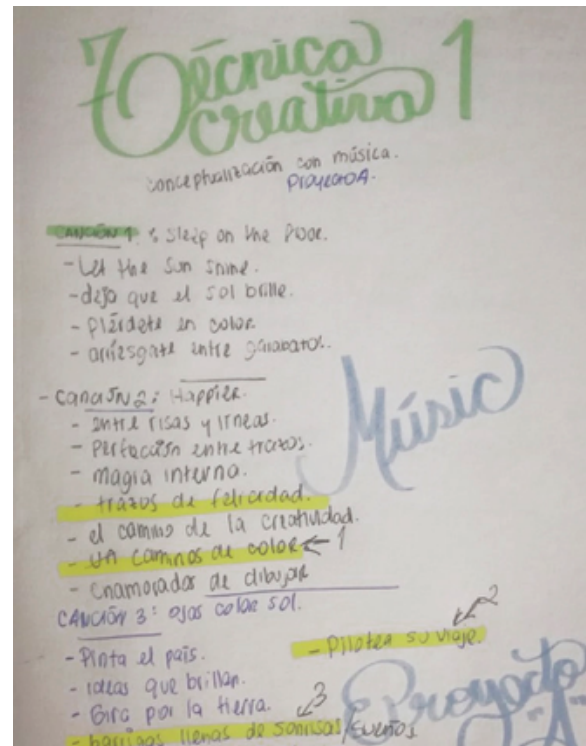 Técnica 1
creativa
conceptualización con música.
Proyecto A.
CANCIÓN 1: Sleep on the floor.
- Let the sun shine.
- deja que el sol brille.
- piérdete en color
- arriésgate entre garabatos.
- CANCIÓN 2: Happier.
- entre risas y líneas.
- Perfección entre trazos.
- magia interna.
- trazos de felicidad.
- el camino de la creatividad.
- un caminos de color ← 1
- enamorados de dibujar
CANCIÓN 3: ojos color sol.
2
- Pinta el país.
- Pilotea su viaje.
- ideas que brillan.
- Gira por la tierra.
3
- barrigas llenas de sonrisas/sueños
Músic
Proyecto
-A-